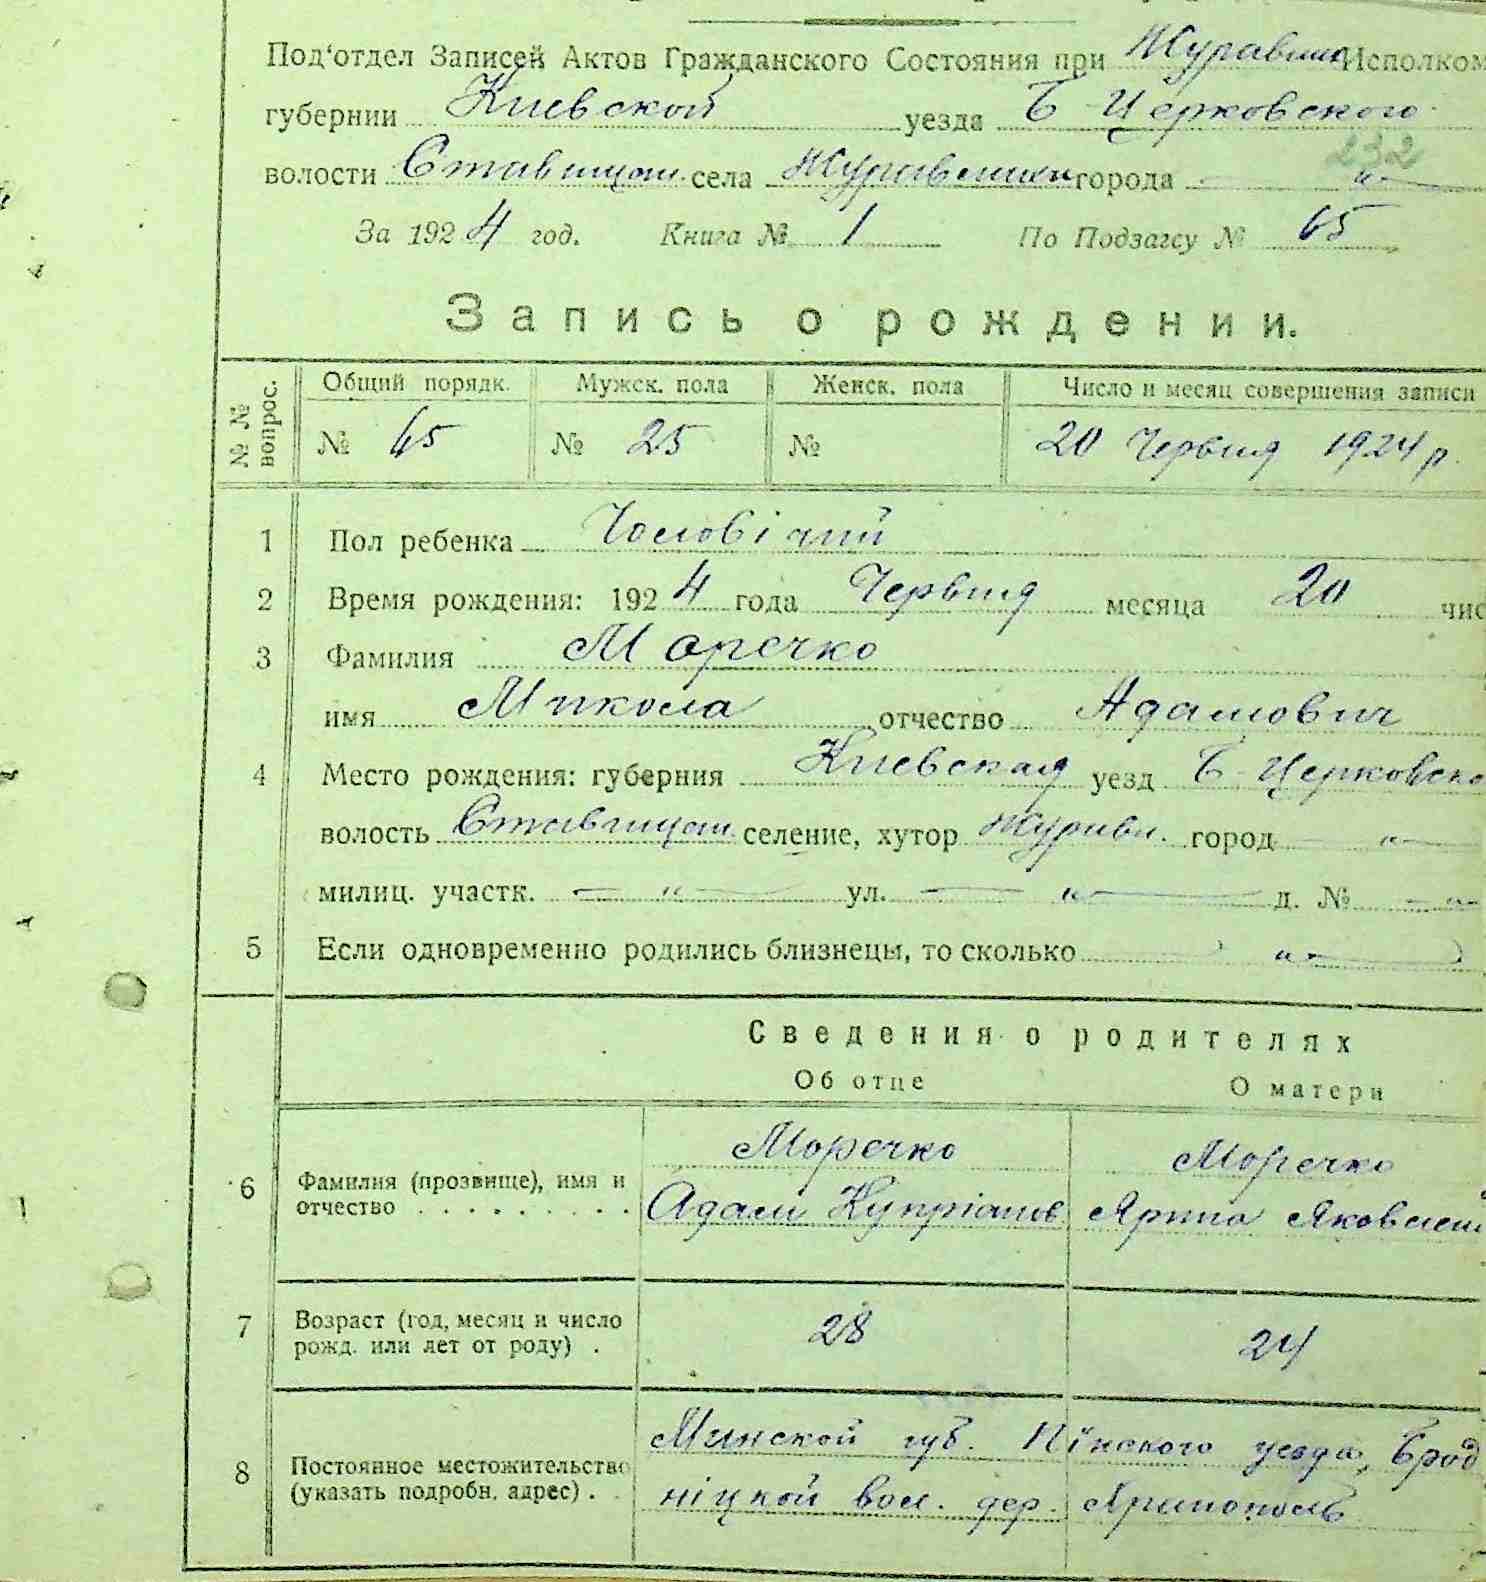 Под'отдел Записей Актов Гражданского Состояния при Журавлис Исполком
губернии Киевской уезда Б-Церковского
232
волости Ставищан. села Журавлиха города — " —
За 1924 год. Книга № 1 По Подзагсу № 65
Запись о рождении.
№ № вопрос. Общий порядк. Мужск. пола Женск. пола Число и месяц совершения записи
№ 65 № 25 № 20 Червня 1924 р.
1 Пол ребенка Чоловічий
2 Время рождения: 1924 года Червня месяца 20 чис
3 Фамилия Моречко
имя Микола отчество Адамович
4 Место рождения: губерния Киевская уезд Б-Церковско
волость Ставищан. селение, хутор Журавл. город — " —
милиц. участк. — " — ул. — " — д. № — " —
5 Если одновременно родились близнецы, то сколько — " —
Сведения о родителях
Об отце О матери
Моречко Моречко
6 Фамилия (прозвище), имя и
отчество . . . . . . . . . Адам Купріанов Ярина Яковлевн
7 Возраст (год, месяц и число
рожд. или лет от роду) . 28 24
Минской губ. Пінского уезда, Брод
8 Постоянное местожительство
(указать подробн. адрес) . ніцкой вол. дер.